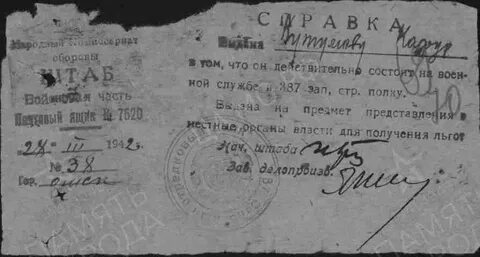 Народный Комиссариат
обороны
ШТАБ
Войсковая часть
Почтовый ящик № 7620
28 III 1942 г.
№ 38
Гор.
СПРАВКА
Выдана
в том, что он действительно состоит на воен-
ной службе в 387 зап, стр. полку.
Выдана на предмет представления в
местные органы власти для получения льгот
Нач. штаба
Зав. делопроизв.
ПАМЯТЬ
НАРОДА